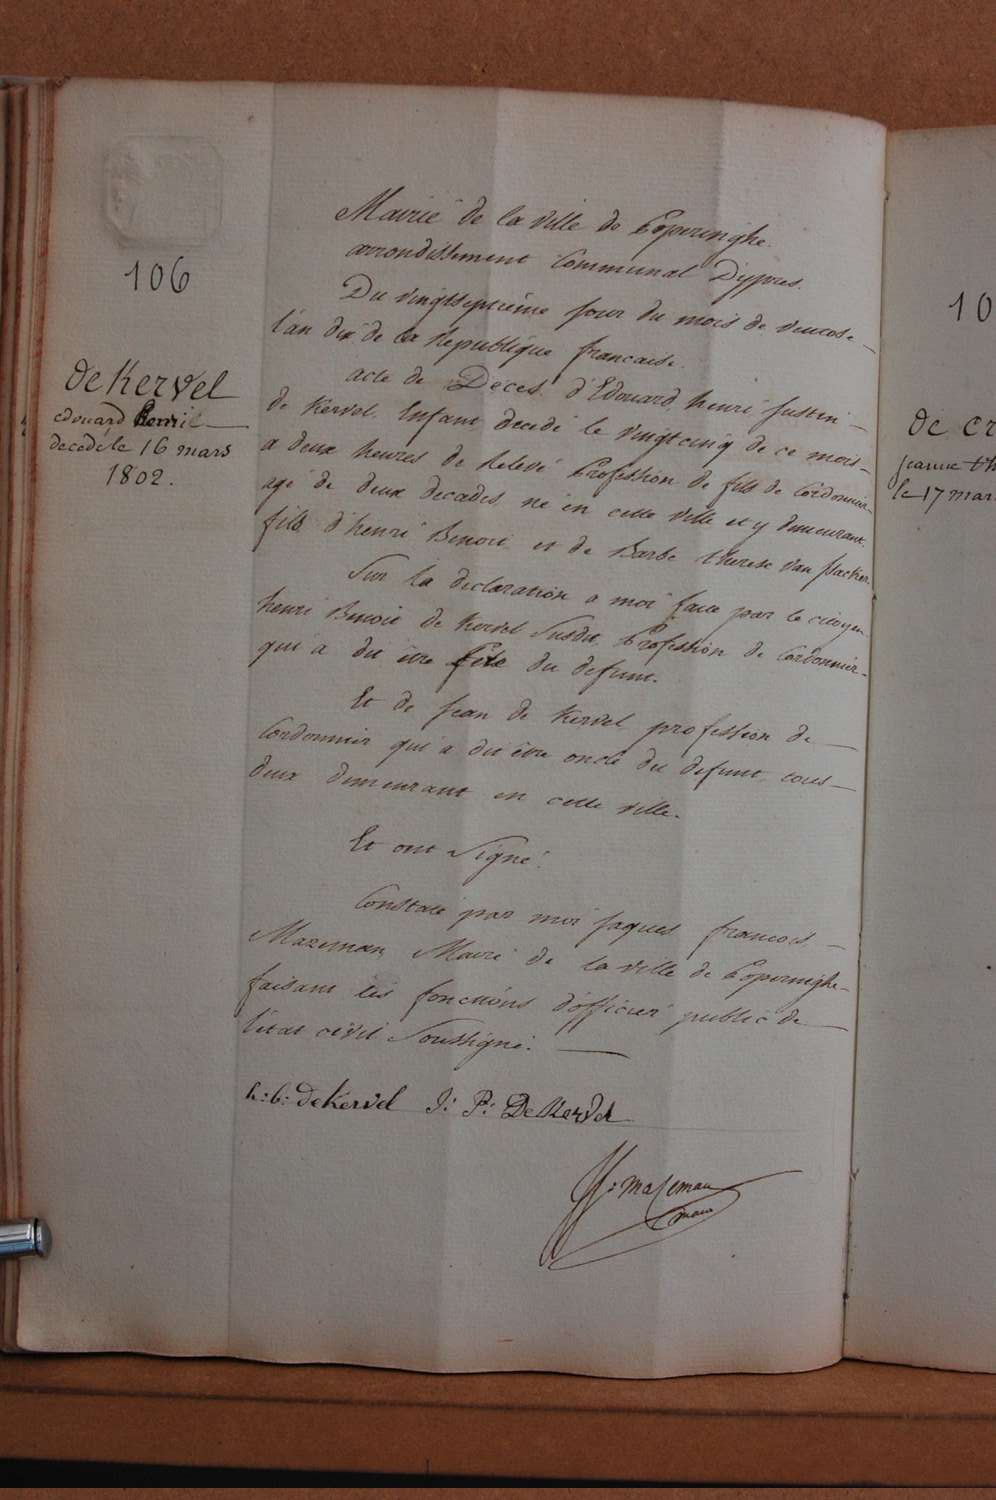 106
de Kervel
edouard henri
decedé le 16 mars
1802.
Mairie de la ville de Poperinghe.
arrondissement Communal D'ypres.
Du vingtseptième jour du mois de ventose
l'an dix de la République francaise.
acte de Déces d'Edouard henri Justin
de Kervel Enfant decedé le vingtcinq de ce mois
a deux heures de Relevé Profession de fils de Cordonnier
agé de deux decades né en cette ville et y demeurant.
fils d'henri Benoit et de Barbe therese van
Sur la declaration a moi faite par le citoyen
henri Benoit de Kervel Susdit Profession de Cordonnier
qui a dit être du defunt.
Et de jean de Kervel profession de
Cordonnier qui a dit être oncle du defunt, tous
deux demeurant en cette ville.
Et ont signé.
Constaté par moi jaques francois
Mazeman Maire de la ville de Poperinghe
faisant les fonctions d'officier public de
l'état civil Soussigné.
h: b: De Kervel J: P: De Kervel
Mazeman
maire
10
de cr
jeanne th
le 17 mar